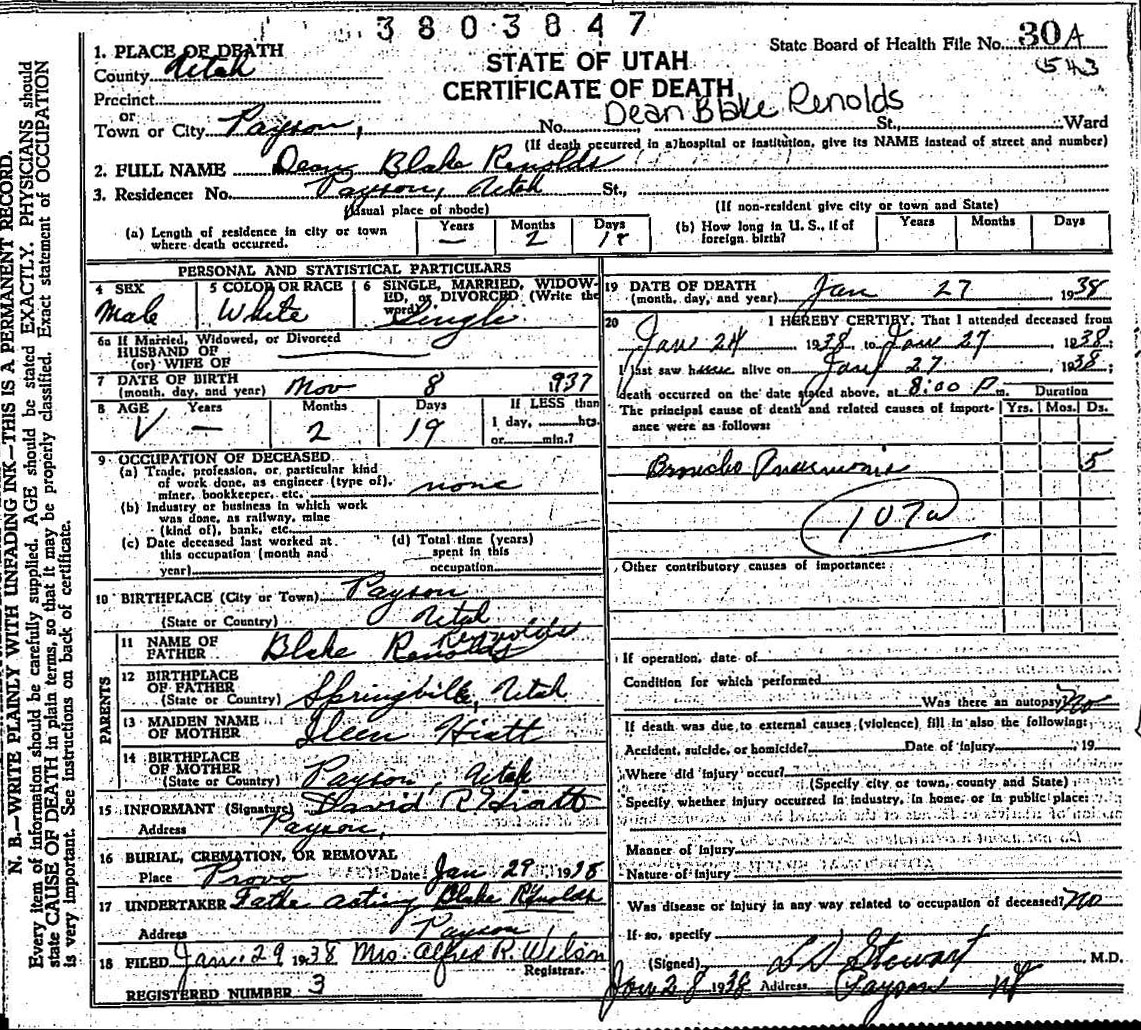 3803847
1. PLACE OF DEATH
County Utah
Precinct
or
Town or City Payson, No. St., Ward
State Board of Health File No. 30A
543
STATE OF UTAH
CERTIFICATE OF DEATH
Dean Blake Renolds
(If death occurred in a hospital or institution, give its NAME instead of street and number)
2. FULL NAME Dean Blake Renolds
3. Residence: No. Payson, Utah St.,
(Usual place of abode) (If non-resident give city or town and State)
(a) Length of residence in city or town where death occurred. Years — Months 2 Days 18
(b) How long in U. S., if of foreign birth? Years Months Days
PERSONAL AND STATISTICAL PARTICULARS
4 SEX Male
5 COLOR OR RACE White
6 SINGLE, MARRIED, WIDOWED, or DIVORCED (Write the word) Single
6a If Married, Widowed, or Divorced
HUSBAND OF
(or) WIFE OF
7 DATE OF BIRTH
(month, day, and year) Nov 8 1937
8 AGE Years — Months 2 Days 19 If LESS than
1 day, hrs.
or min.?
9 OCCUPATION OF DECEASED
(a) Trade, profession, or particular kind
of work done, as engineer (type of),
miner, bookkeeper, etc. none
(b) Industry or business in which work
was done, as railway, mine
(kind of), bank, etc.
(c) Date deceased last worked at
this occupation (month and
year)
(d) Total time (years)
spent in this
occupation
10 BIRTHPLACE (City or Town) Payson
(State or Country) Utah
PARENTS
Reynolds
11 NAME OF
FATHER Blake Renolds
12 BIRTHPLACE
OF FATHER
(State or Country) Springville, Utah
13 MAIDEN NAME
OF MOTHER Ileen Hiatt
14 BIRTHPLACE
OF MOTHER
(State or Country) Payson, Utah
15 INFORMANT (Signature) David R Hiatt
Address Payson,
16 BURIAL, CREMATION, OR REMOVAL
Place Provo Date Jan 29 1938
17 UNDERTAKER Father acting Blake Reynolds
Address Payson
18 FILED Jan. 29 1938 Mrs. Alfred R. Wilson
Registrar.
REGISTERED NUMBER 3
19 DATE OF DEATH
(month, day, and year) Jan 27 1938
20 I HEREBY CERTIFY, That I attended deceased from
Jan 24 1938 to Jan 27 1938;
I last saw h alive on Jan 27 1938;
death occurred on the date stated above, at 8:00 P m.
The principal cause of death and related causes of importance were as follows:
Duration
Yrs. Mos. Ds.
Broncho Pneumonia 5
107a
Other contributory causes of importance:
If operation, date of
Condition for which performed
Was there an autopsy? no
If death was due to external causes (violence) fill in also the following:
Accident, suicide, or homicide? Date of injury 19
Where did injury occur?
(Specify city or town, county and State)
Specify whether injury occurred in industry, in home, or in public place:
Manner of injury
Nature of injury
Was disease or injury in any way related to occupation of deceased? no
If so, specify
(Signed) L D Stewart M.D.
Jan 28 1938 Address Payson
N. B.—WRITE PLAINLY WITH UNFADING INK—THIS IS A PERMANENT RECORD.
Every item of information should be carefully supplied. AGE should be stated EXACTLY. PHYSICIANS should
state CAUSE OF DEATH in plain terms, so that it may be properly classified. Exact statement of OCCUPATION
is very important. See instructions on back of certificate.